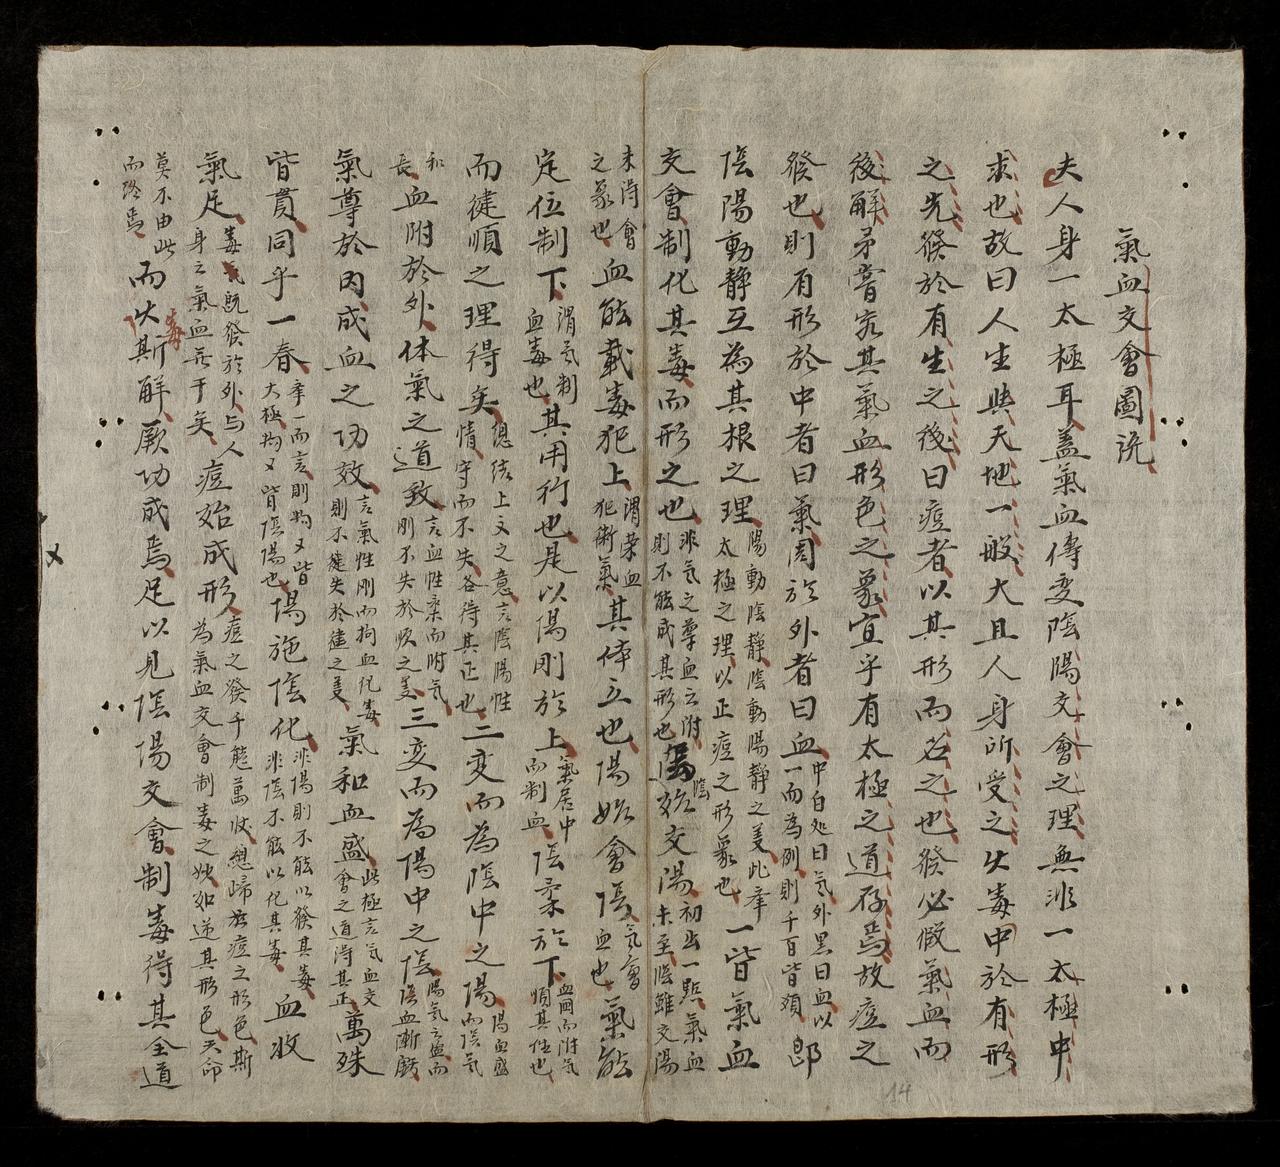 氣血交會圖說
夫人身一太極耳盖氣血傳变陰陽交會之理無非一太極中
求也故曰人生與天地一般大且人身所受之火毒中於有形
之先發於有生之後曰痘者以其形而名之也發必假氣血而
後解矛嘗窮其氣血形色之象宜乎有太極之道存焉故痘之
發也則有形於中者曰氣周於外者曰血中白処曰气外黑曰血以一而為例則千百皆類即
陰陽動靜互為其根之理陽動陰靜陰動陽靜之美此率太極之理以正痘之形象也一皆氣血
交會制化其毒而形之也非气之尊血之附則不能成其形也陰始交陽初出一點氣血未至陰雖交陽
未得會之象也血能載毒犯上謂荣血犯衛氣其体立也陽始會陰气會血也氣能
定位制下謂气制血毒也其用行也是以陽剛於上氣居中而制血陰柔於下血圍而附气順其性也
而健順之理得矣總结上文之意言陰陽性情守而不失各得其正也二变而為陰中之陽陽血盛而陰气
和長血附於外体氣之道致言血性柔而附气則不失於順之美三变而為陽中之陰陽氣之盛而陰血漸𧇊
氣尊於内成血之功效言氣性剛而拘血化毒則不失於健之美氣和血盛此極言气血交會之道得其正萬殊
皆貫同乎一春率一而言則均又皆大極均又皆陰陽也陽施陰化非陽則不能以發其毒非陰不能以化其毒血收
氣足毒气既發於外与人身之氣血無于矣痘始成形痘之發千態萬收總歸於痘之形色斯為氣血交會制毒之始如逆其形色天卽
莫不由此而路焉而火毒斯解厥功成焉足以見陰陽交會制毒得其全道
14